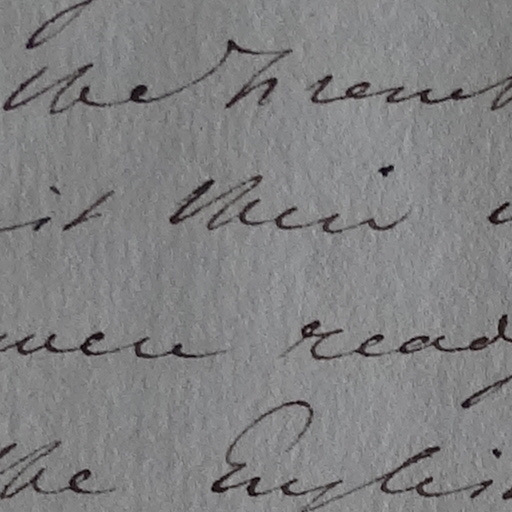 the French
it their
men ready
the English